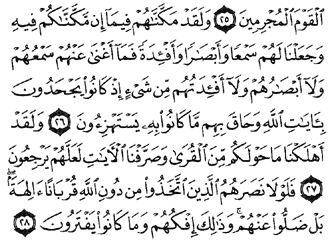 ٱلْقَوْمَ ٱلْمُجْرِمِينَ ٢٥ وَلَقَدْ مَكَّنَّٰهُمْ فِيمَآ إِن مَّكَّنَّٰكُمْ فِيهِ
وَجَعَلْنَا لَهُمْ سَمْعًا وَأَبْصَٰرًا وَأَفْـِٔدَةً فَمَآ أَغْنَىٰ عَنْهُمْ سَمْعُهُمْ
وَلَآ أَبْصَٰرُهُمْ وَلَآ أَفْـِٔدَتُهُم مِّن شَىْءٍ إِذْ كَانُوا۟ يَجْحَدُونَ
بِـَٔايَٰتِ ٱللَّهِ وَحَاقَ بِهِم مَّا كَانُوا۟ بِهِۦ يَسْتَهْزِءُونَ ٢٦ وَلَقَدْ
أَهْلَكْنَا مَا حَوْلَكُم مِّنَ ٱلْقُرَىٰ وَصَرَّفْنَا ٱلْءَايَٰتِ لَعَلَّهُمْ يَرْجِعُونَ
٢٧ فَلَوْلَا نَصَرَهُمُ ٱلَّذِينَ ٱتَّخَذُوا۟ مِن دُونِ ٱللَّهِ قُرْبَانًا ءَالِهَةًۢ ۖ
بَلْ ضَلُّوا۟ عَنْهُمْ ۚ وَذَٰلِكَ إِفْكُهُمْ وَمَا كَانُوا۟ يَفْتَرُونَ ٢٨